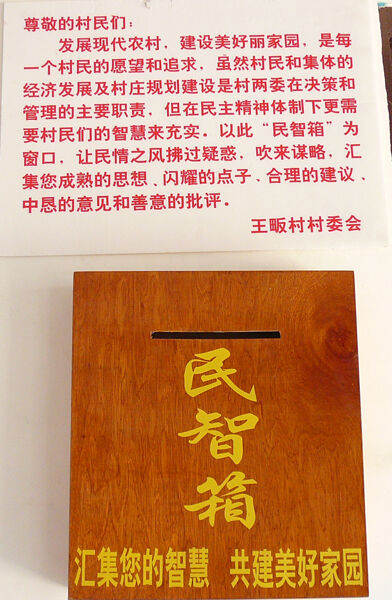 尊敬的村民们：
发展现代农村，建设美好丽家园，是每
一个村民的愿望和追求，虽然村民和集体的
经济发展及村庄规划建设是村两委在决策和
管理的主要职责，但在民主精神体制下更需
要村民们的智慧来充实。以此“民智箱”为
窗口，让民情之风拂过疑惑，吹来谋略，汇
集您成熟的思想、闪耀的点子、合理的建议、
中恳的意见和善意的批评。
王畈村村委会
民智箱
汇集您的智慧 共建美好家园